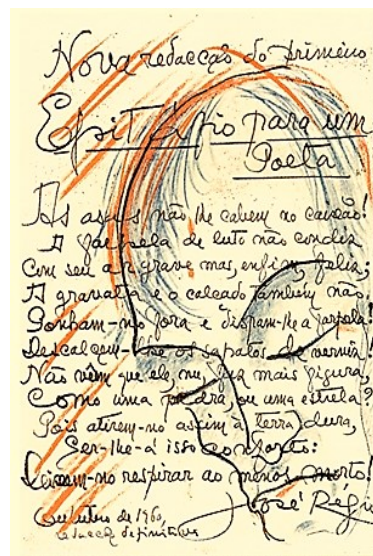 Nova redacção do primeiro
Epitáfio para um
Poeta
As asas não lhe cabem no caixão!
A farpela de luto não condiz
Com seu ar grave mas, enfim, feliz;
A gravata e o calçado também não.
Ponham-no fora e dispam-lhe a farpela!
Descalcem-lhe os sapatos de verniz!
Não vêm que ele, nu, faz mais figura,
Como uma pedra, ou uma estrela?
Pois atirem-no assim à terra dura,
Ser-lhe-á isso conforto:
Deixem-no respirar ao menos morto!
José Régio
Outubro de 1960,
redacção definitiva